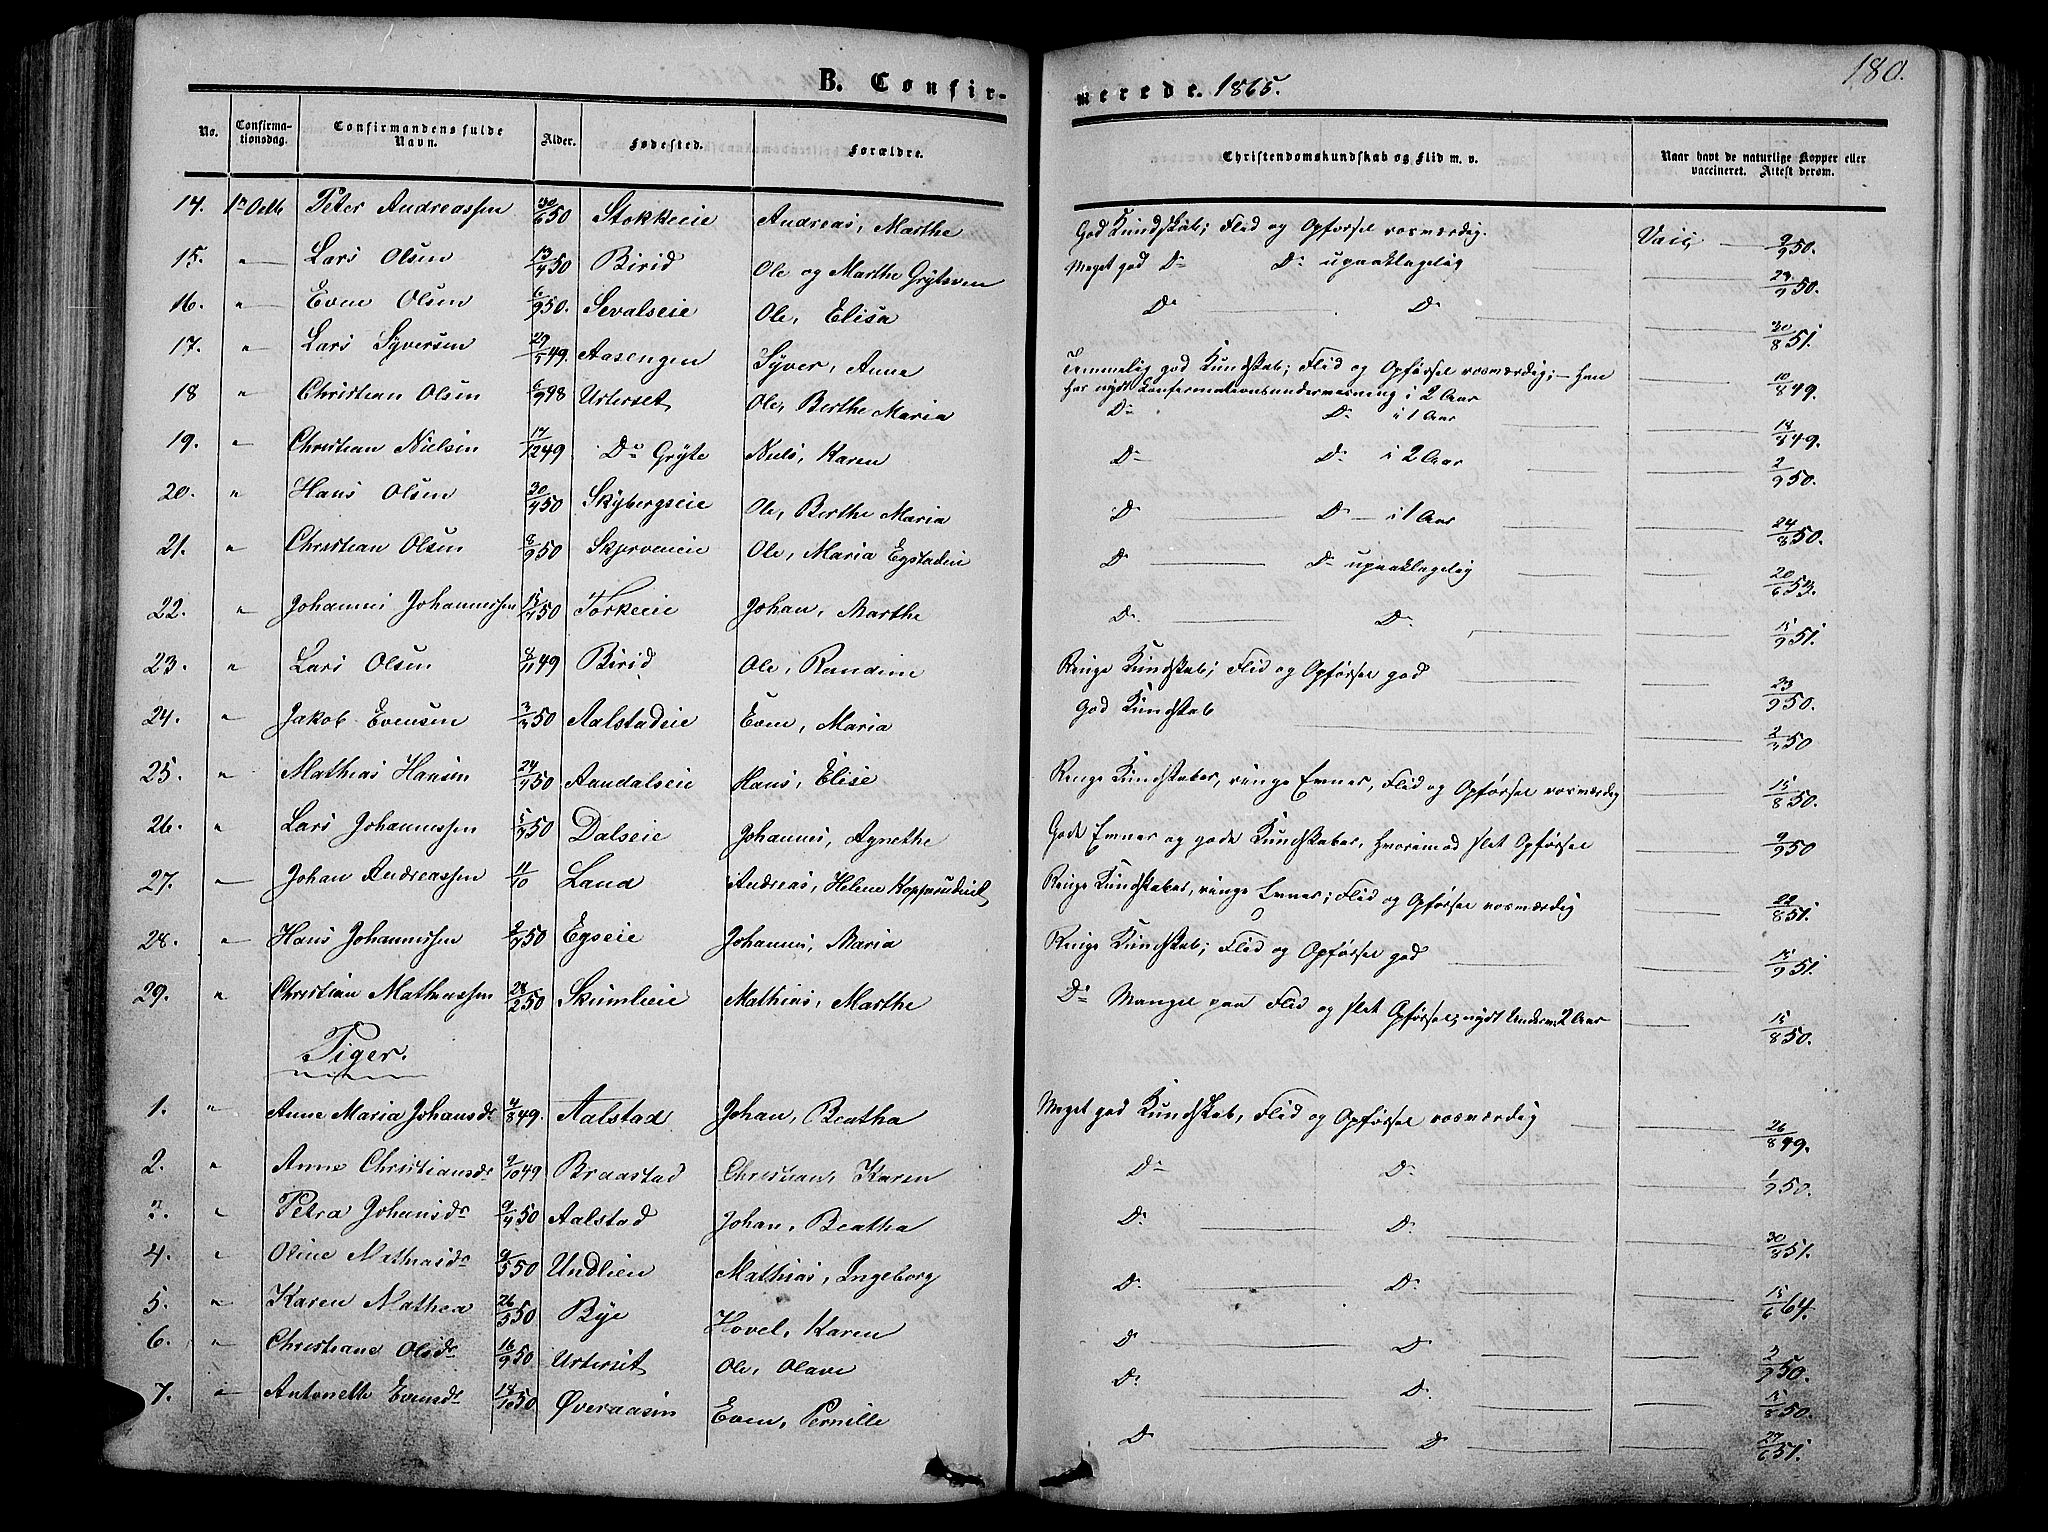 B. Confirmerede. 1865.
180.
No. Confirmationsdag. Confirmandens fulde Navn. Alder. Fødested. Forældre. Christendomskundskab og Flid m. v. Naar havt de naturlige Kopper eller vaccineret. Attest derom.
14. 1ste Octb Peter Andreassen 30/6 50 Stokkeeie Andreas, Marthe God Kundskab; Flid og Opførsel rosværdig. Vacc 9/9 50.
15. " Lars Olsen 13/4 50 Birid Ole og Marthe Grytsven Meget god Do Do upaaklagelig 23/9 50.
16. " Even Olsen 6/9 50. Sevalseie Ole, Elisa Do Do 30/8 51.
17. " Lars Syversen 29/5 49. Aasengen Syver, Anne Temmelig god Kundskab; Flid og Opførsel rosværdig; – Han har nydt Confirmationsundervisning i 2 Aar 10/8 49.
18 " Christian Olsen 6/9 98 Urterset Ole, Berthe Maria Do Do i 1 Aar 18/8 49.
19. " Christian Nielsen 17/12 49 Do Gryte Niels, Karen Do Do i 2 Aar 2/9 50.
20. " Hans Olsen 30/4 50 Skybergseie Ole, Berthe Maria Do Do i 1 Aar 24/8 50.
21. " Christian Olsen 8/9 50 Skjerveneie Ole, Maria Egstadeie Do Do upaaklagelig 20/6 53.
22. " Johannes Johannessen 13/4 50 Torkeeie Johan, Marthe Do Do 15/9 51.
23. " Lars Olsen 8/11 49 Birid Ole, Randine Ringe Kundskab; Flid og Opførsel god 23/9 50.
24. " Jakob Evensen 3/3 50 Aalstadeie Even, Maria God Kundskab 2/9 50
25. " Mathias Hansen 24/4 50 Aandalseie Hans, Elise Ringe Kundskaber, ringe Evner, Flid og Opførsel rosværdig 15/8 50.
26. " Lars Johannessen 5/9 50 Dalseie Johannes, Agnethe Gode Evner og gode Kundskaber, hvorimod slet Opførsel 9/9 50
27. " Johan Andreassen 11/10 Land Andreas, Helene Ringe Kundskaber, ringe Evner; Flid og Opførsel rosværdig 22/8 51.
28. " Hans Johannessen 2/9 50 Egseie Johannes, Maria Ringe Kundskab; Flid og Opførsel god 15/9 51.
29. " Christian Mathiassen 28/2 50 Skumlieie Mathias, Marthe Do Mangel paa Flid og slet Opførsel; nydt Underv. 2 Aar 15/8 50.
Piger.
1. " Anne Maria Johansdr 4/8 49. Aalstad Johan, Beatha Meget god Kundskab, Flid og Opførsel rosværdig 26/8 49.
2. " Anne Christiansdr 9/10 49 Braastad Christian, Karen Do Do 1/9 50.
3. " Petra Johansdr 9/4 50 Aalstad Johan, Beatha Do Do 30/8 51.
4. " Oline Mathiasdr 9/5 50 Undlien Mathias, Ingeborg Do Do 15/6 64.
5. " Karen Mathea 26/5 50 Bye Hovel, Karen Do Do 2/9 50.
6. " Christiane Olsdr 16/9 50 Urterset Ole, Olave Do Do 15/8 50.
7. " Antonette Evensdr 18/10 50 Øveraasen Even, Pernille Do Do 27/6 51.